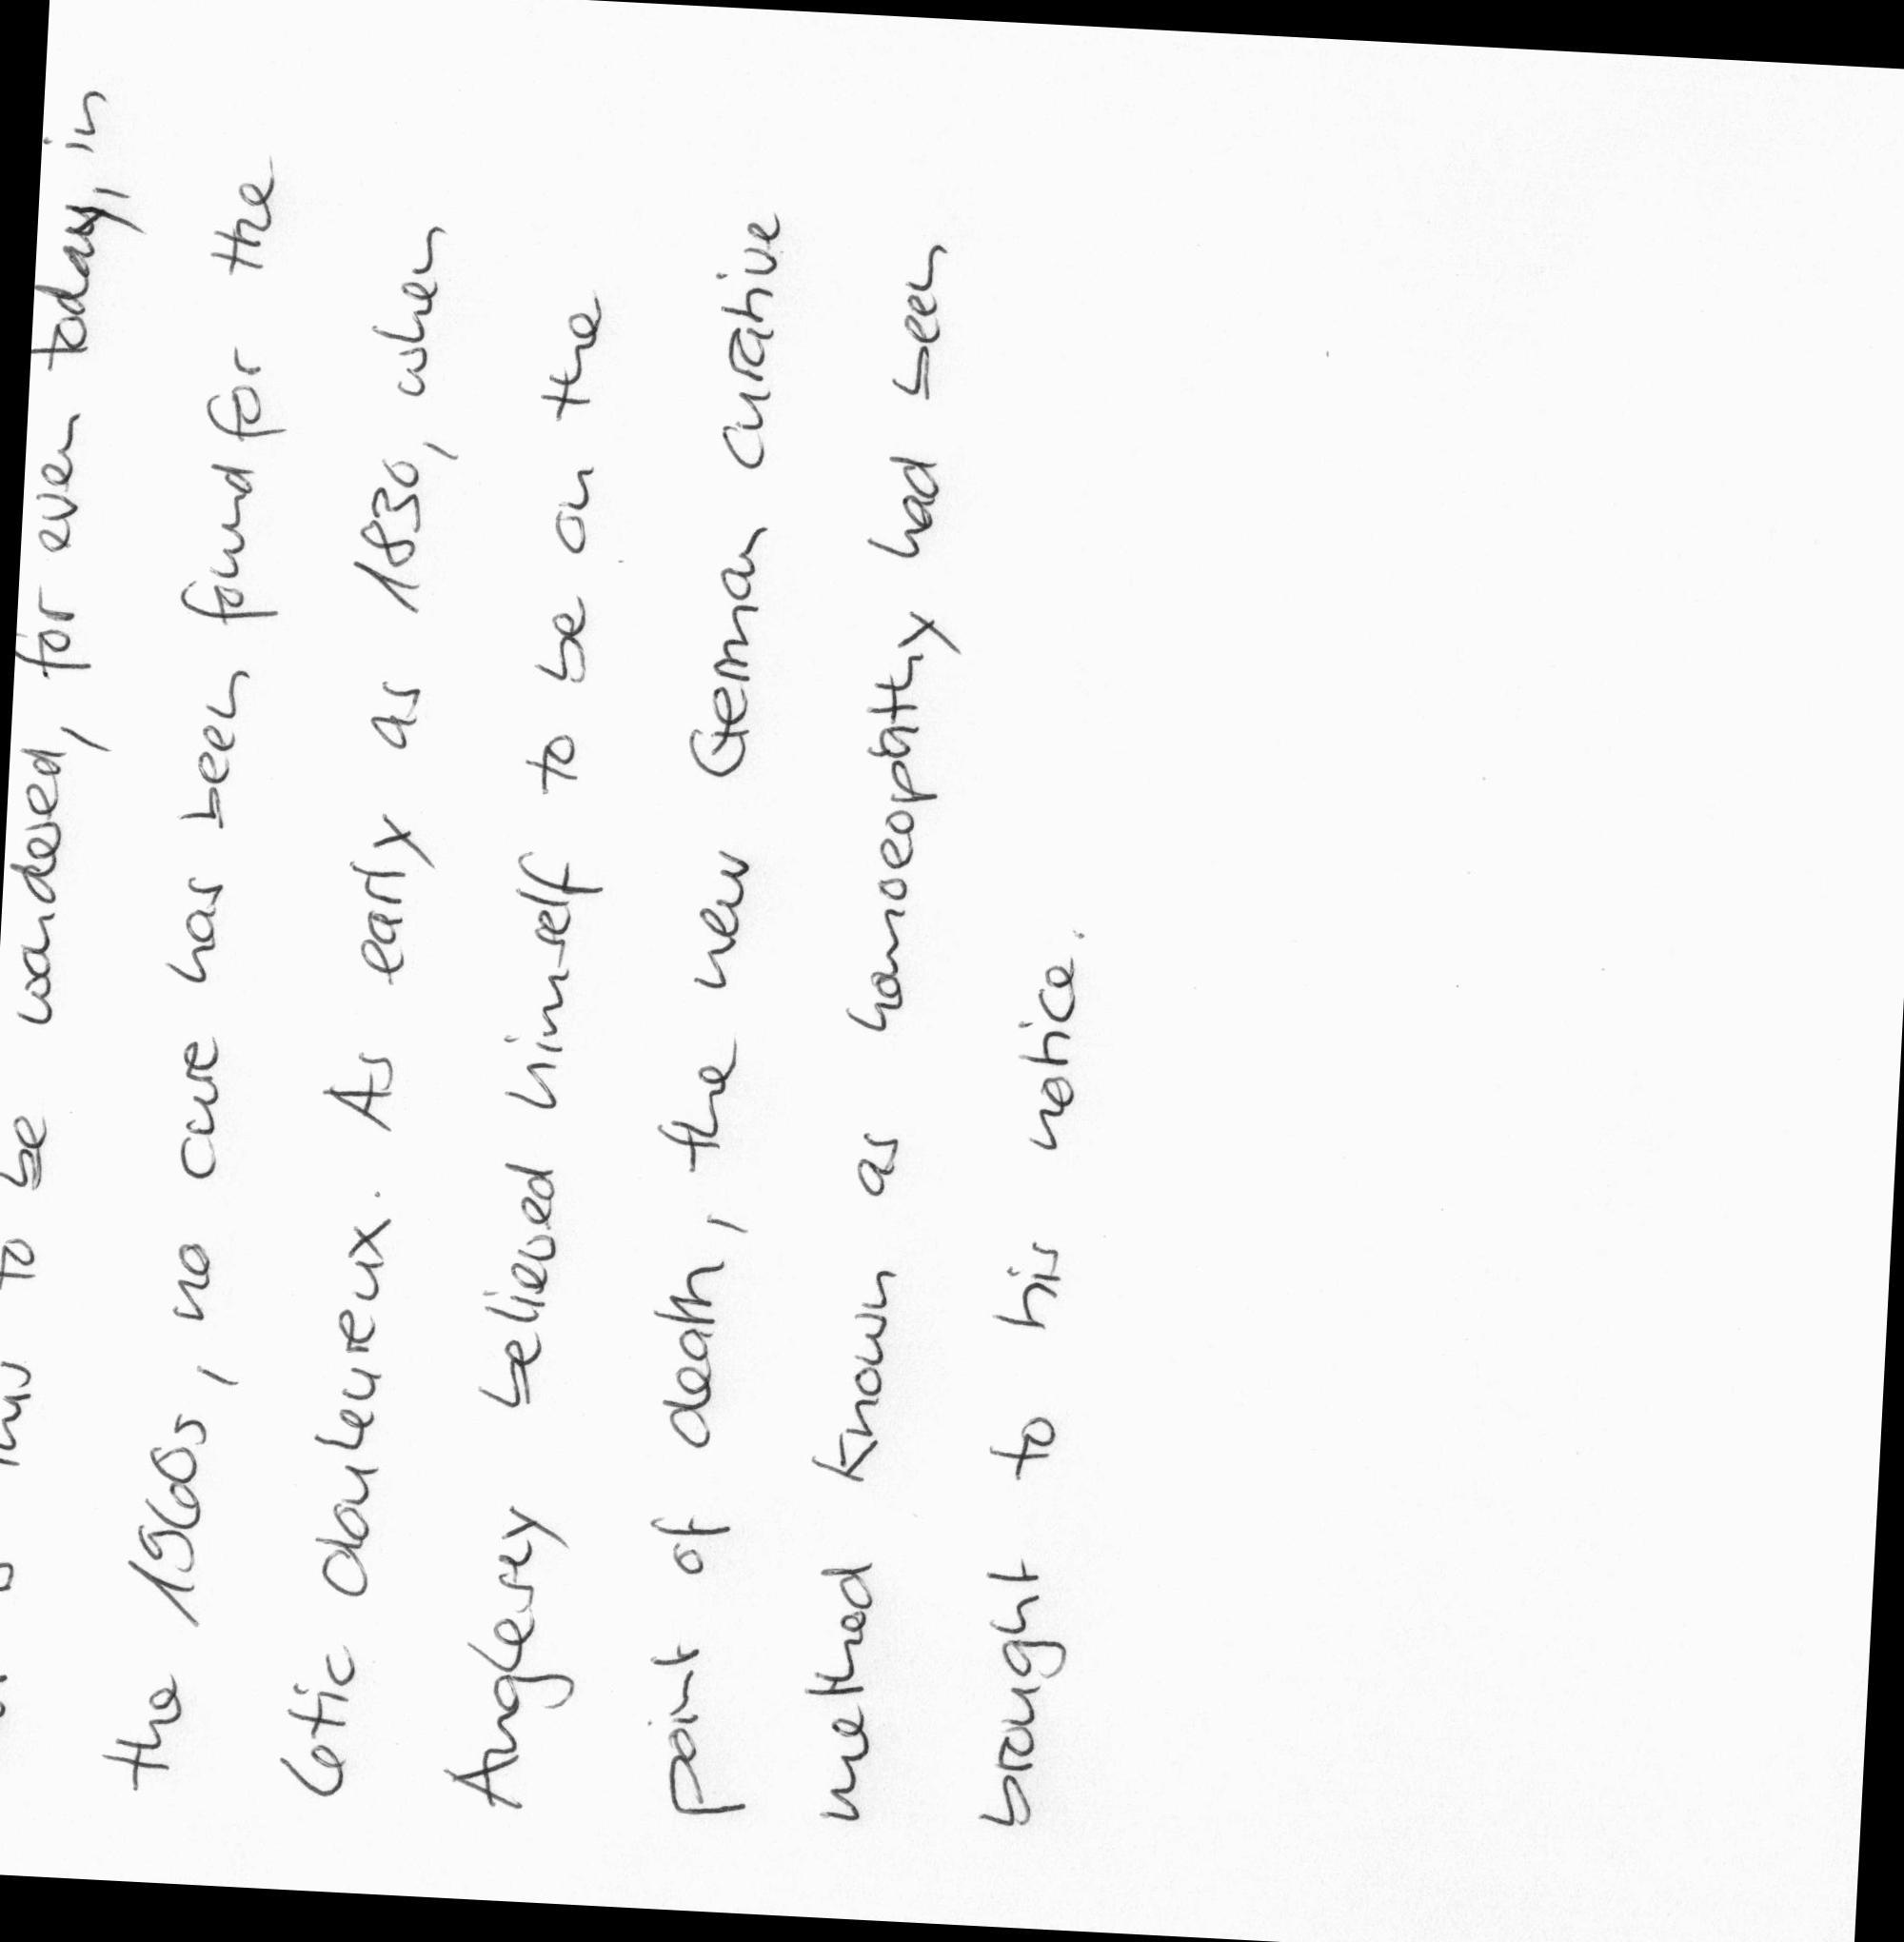 to be wondered, for even today, in
the 1960s, no cure has been found for the
tic douleureux. As early as 1830, when
Anglesey believed himself to be on the
point of death, the new German curative
method known as homoeopathy had been
brought to his notice.